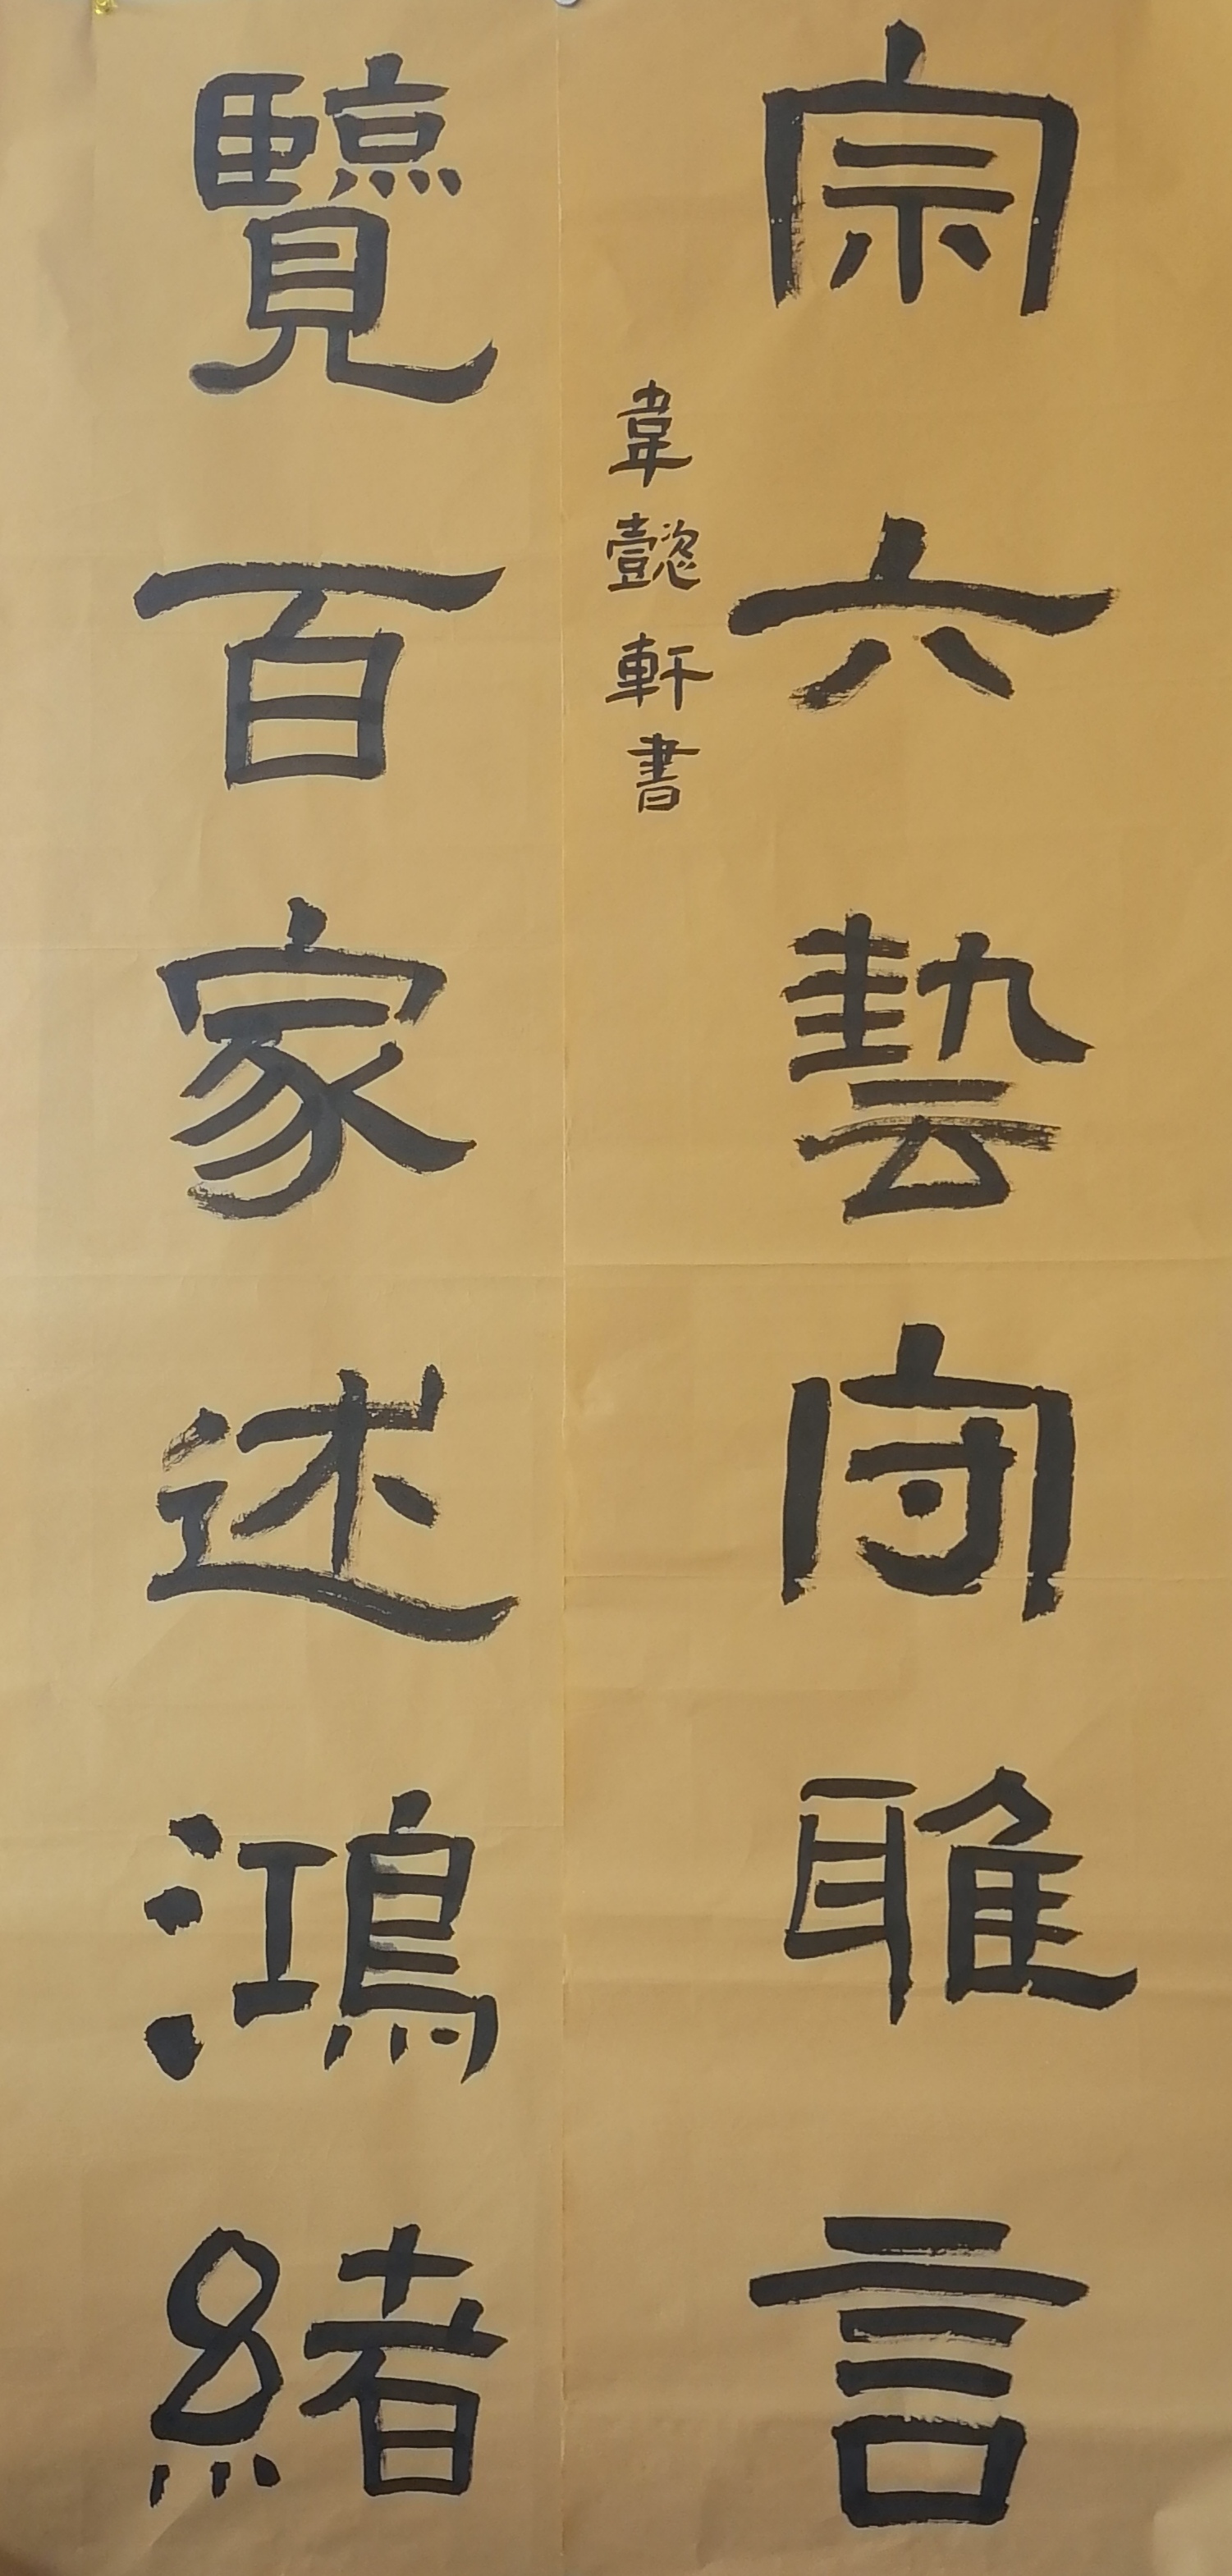 宗六藝守雅言
韋懿軒書
覽百家述鴻緒